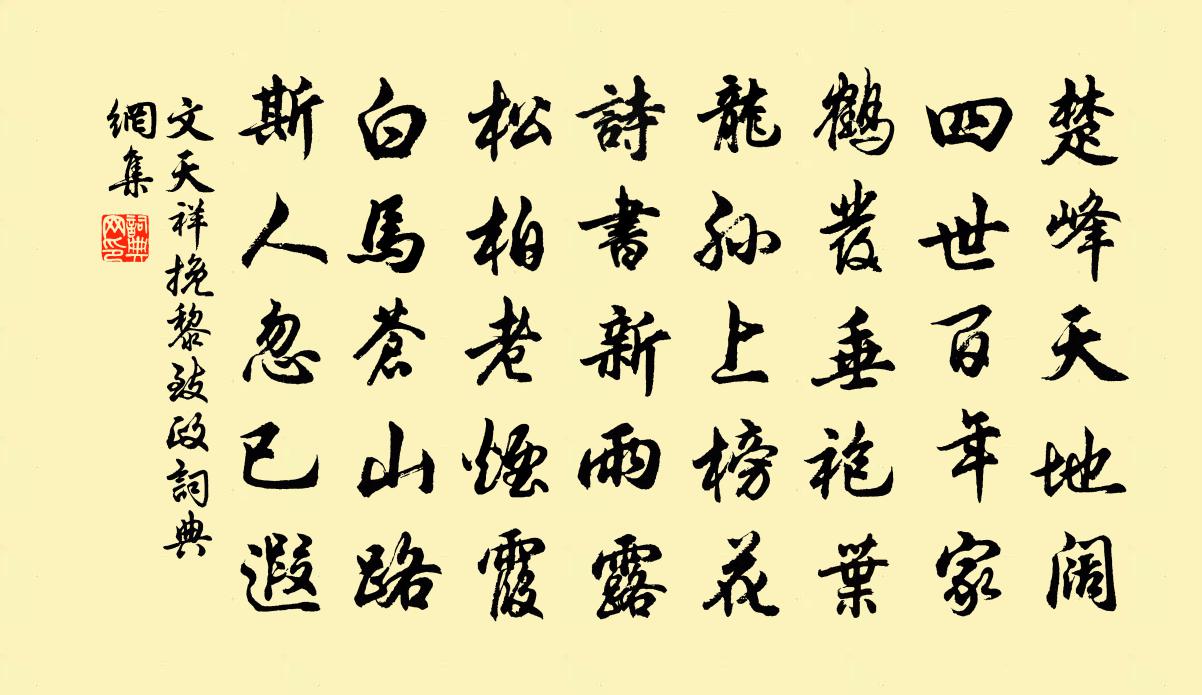 楚峰天地阔
四世百年家
鶴發垂袍葉
龍孙上榜花
詩書新雨露
松柏老煙霞
白馬蒼山路
斯人忽已遐
文天祥挽黎致政詞典
網集
詞典網印